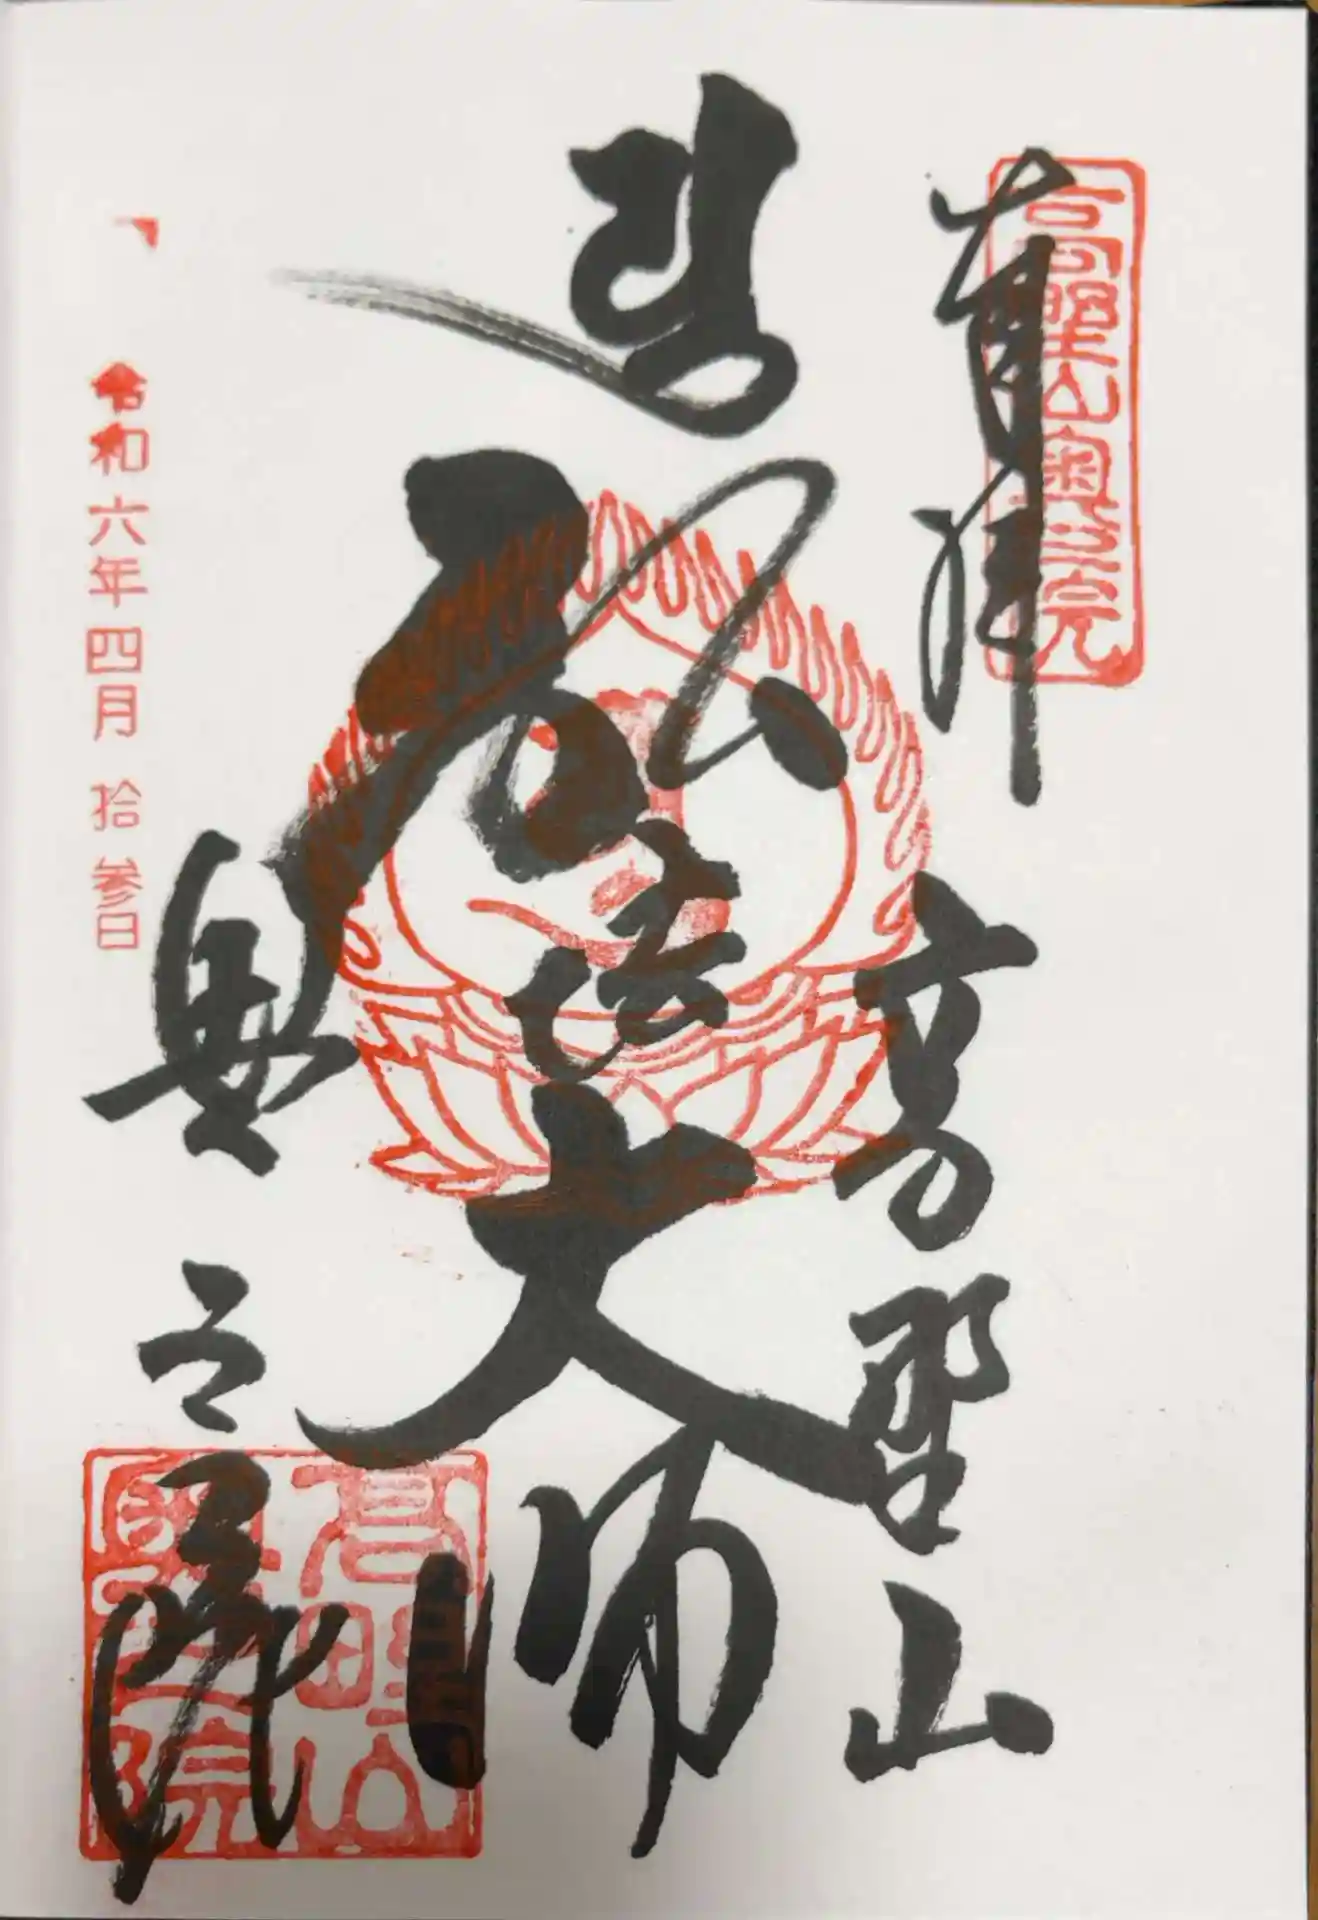 奉拝
高野山奥之院
高野山
弘法大師
奥之院
令和六年四月拾参日
高野山
奥之院